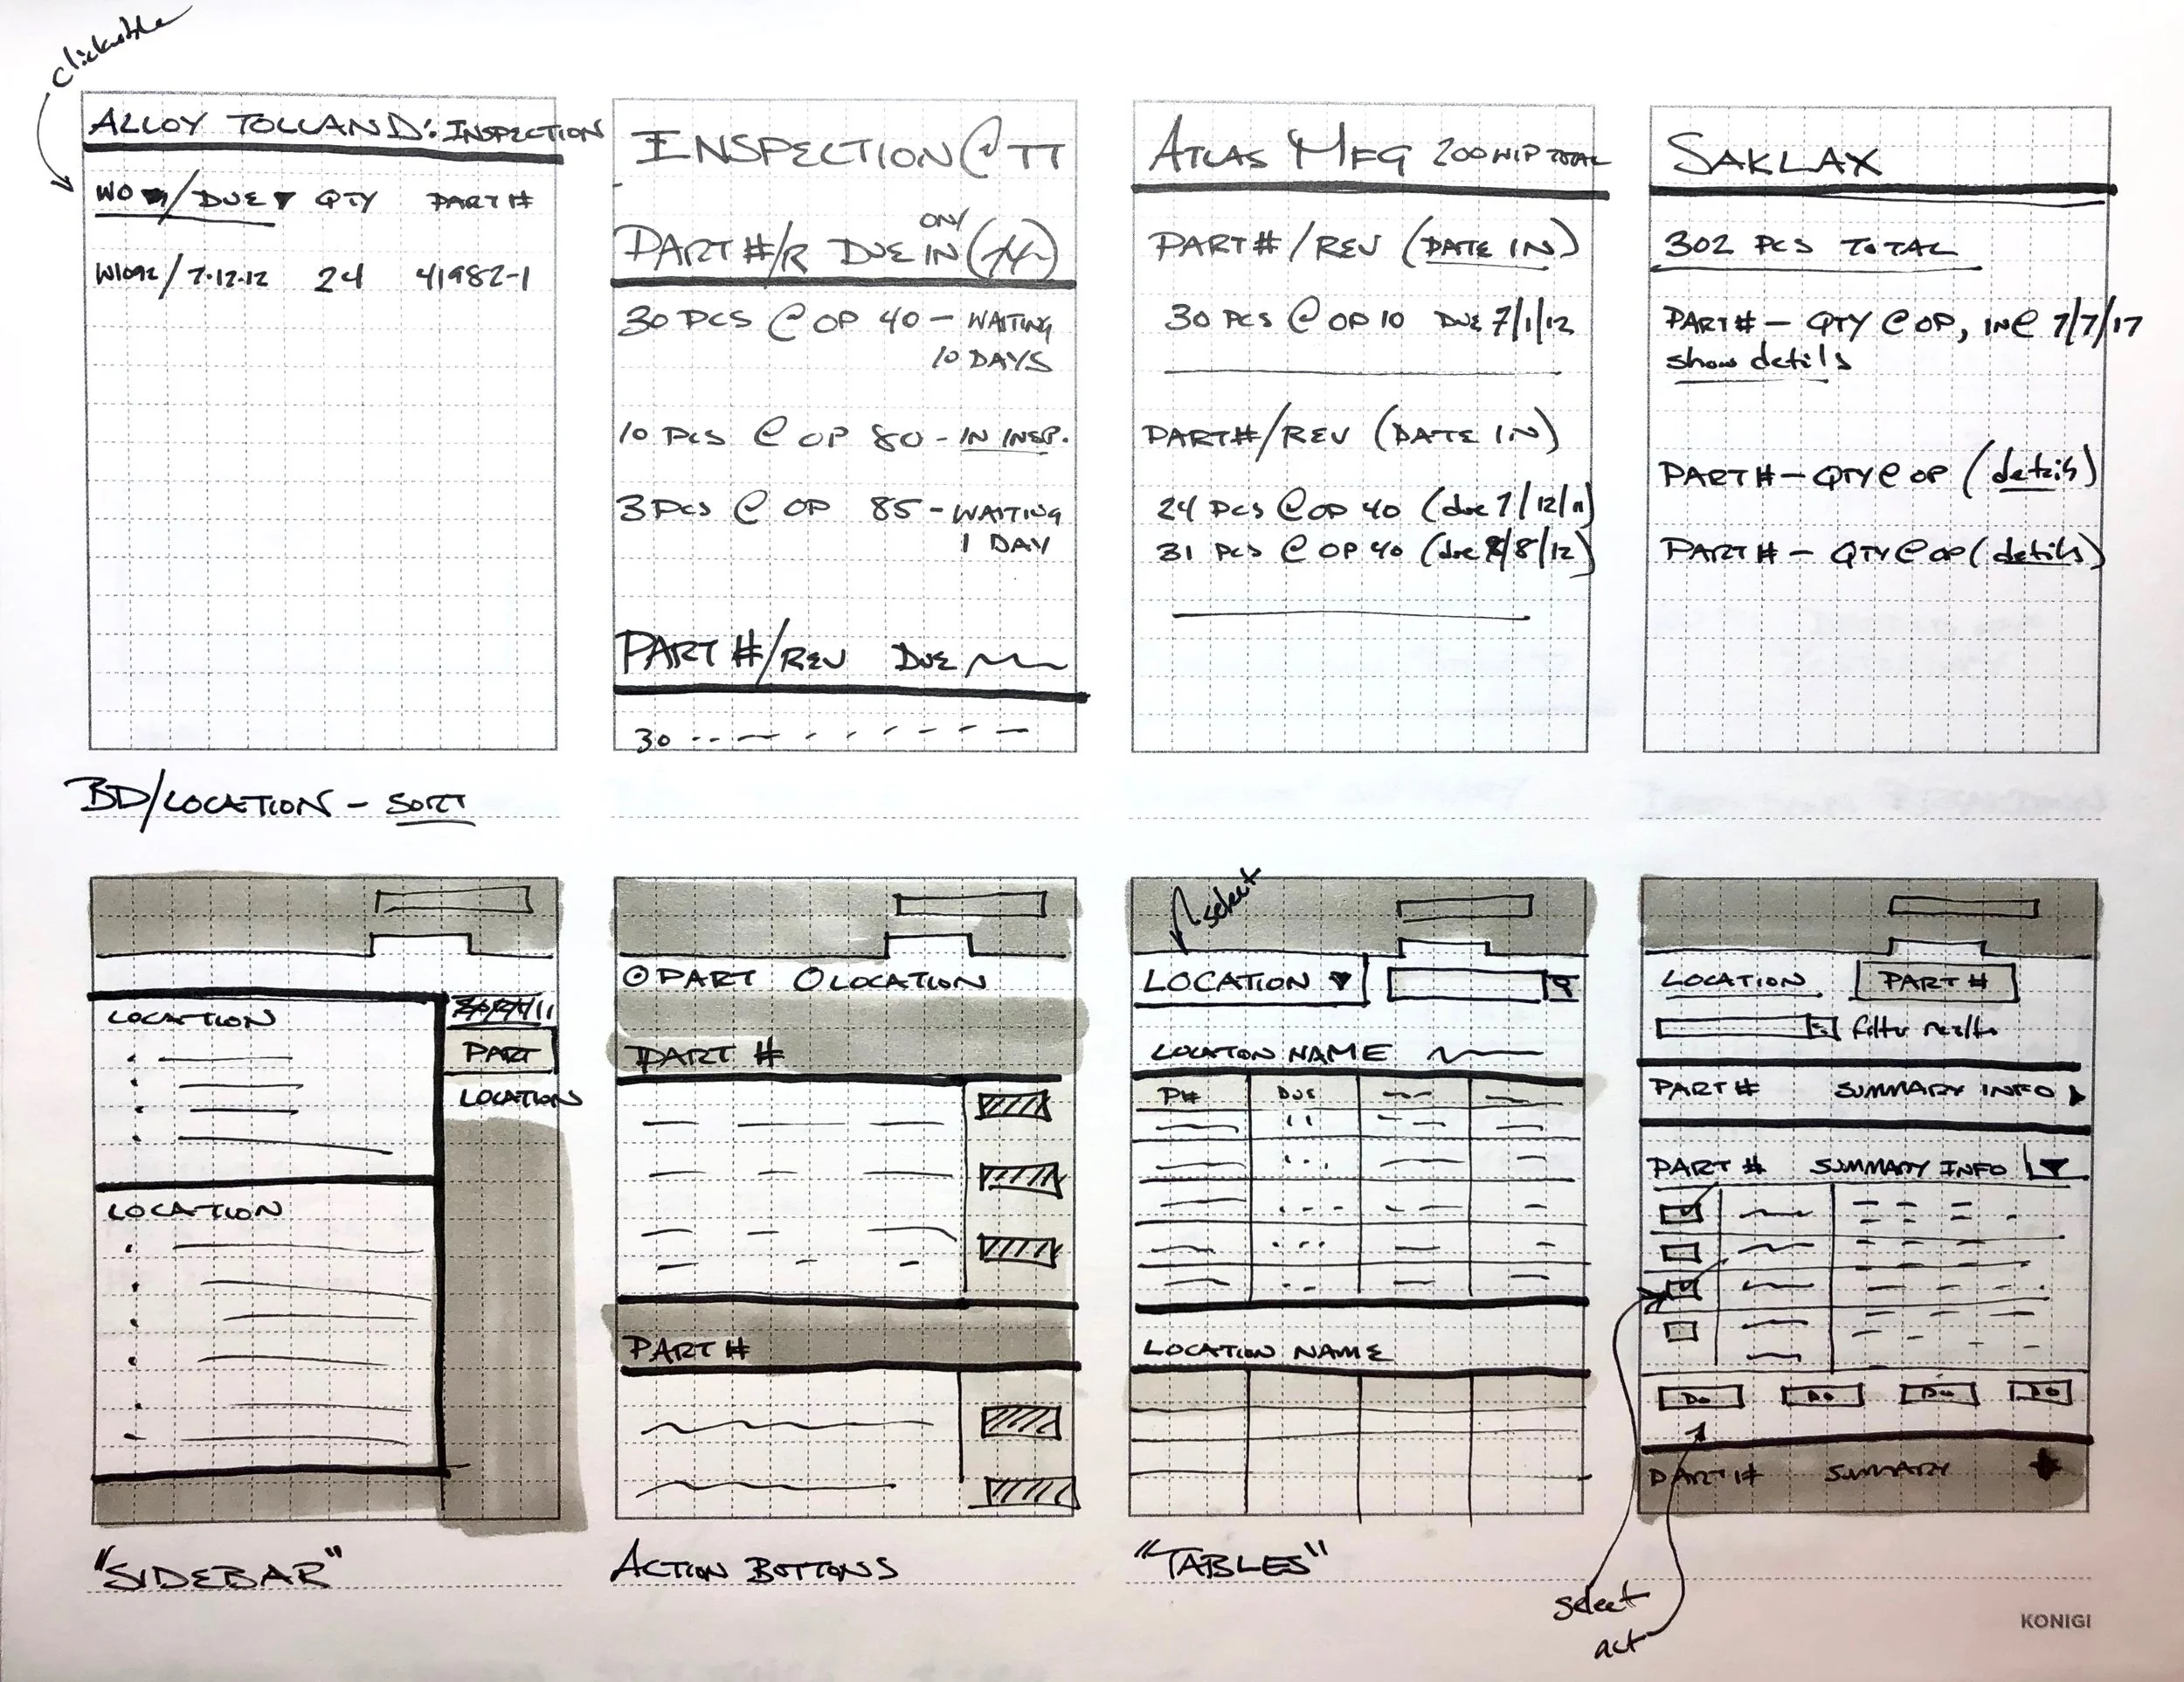 clickable
ALLOY TOLLAND: INSPECTION
WO / DUE QTY PART #
W1092 / 7.12.12 24 41982-1
BD/LOCATION - SORT
INSPECTION @ TT
ON/
PART #/R DUE IN
30 PCS @ OP 40 - WAITING
10 DAYS
10 PCS @ OP 80 - IN INSP.
3 PCS @ OP 85 - WAITING
1 DAY
PART #/REV DUE
30
ATLAS MFG 200 WIP TOTAL
PART # / REV (DATE IN)
30 PCS @ OP 10 DUE 7/1/12
PART#/REV (DATE IN)
24 PCS @ OP 40 (due 7/12/11)
31 PCS @ OP 40 (due 8/8/12)
SAKLAX
302 PCS TOTAL
PART # - QTY @ OP, IN @ 7/7/17
show details
PART # - QTY @ OP (details)
PART # - QTY @ OP (details)
LOCATION
PART
LOCATION
LOCATION
"SIDEBAR"
PART LOCATION
PART #
PART #
ACTION BUTTONS
select
LOCATION
LOCATION NAME
P# DUE
LOCATION NAME
"TABLES"
LOCATION PART #
filter results
PART # SUMMARY INFO
PART # SUMMARY INFO
DO DO DO DO
PART # SUMMARY
select
act
KONIGI